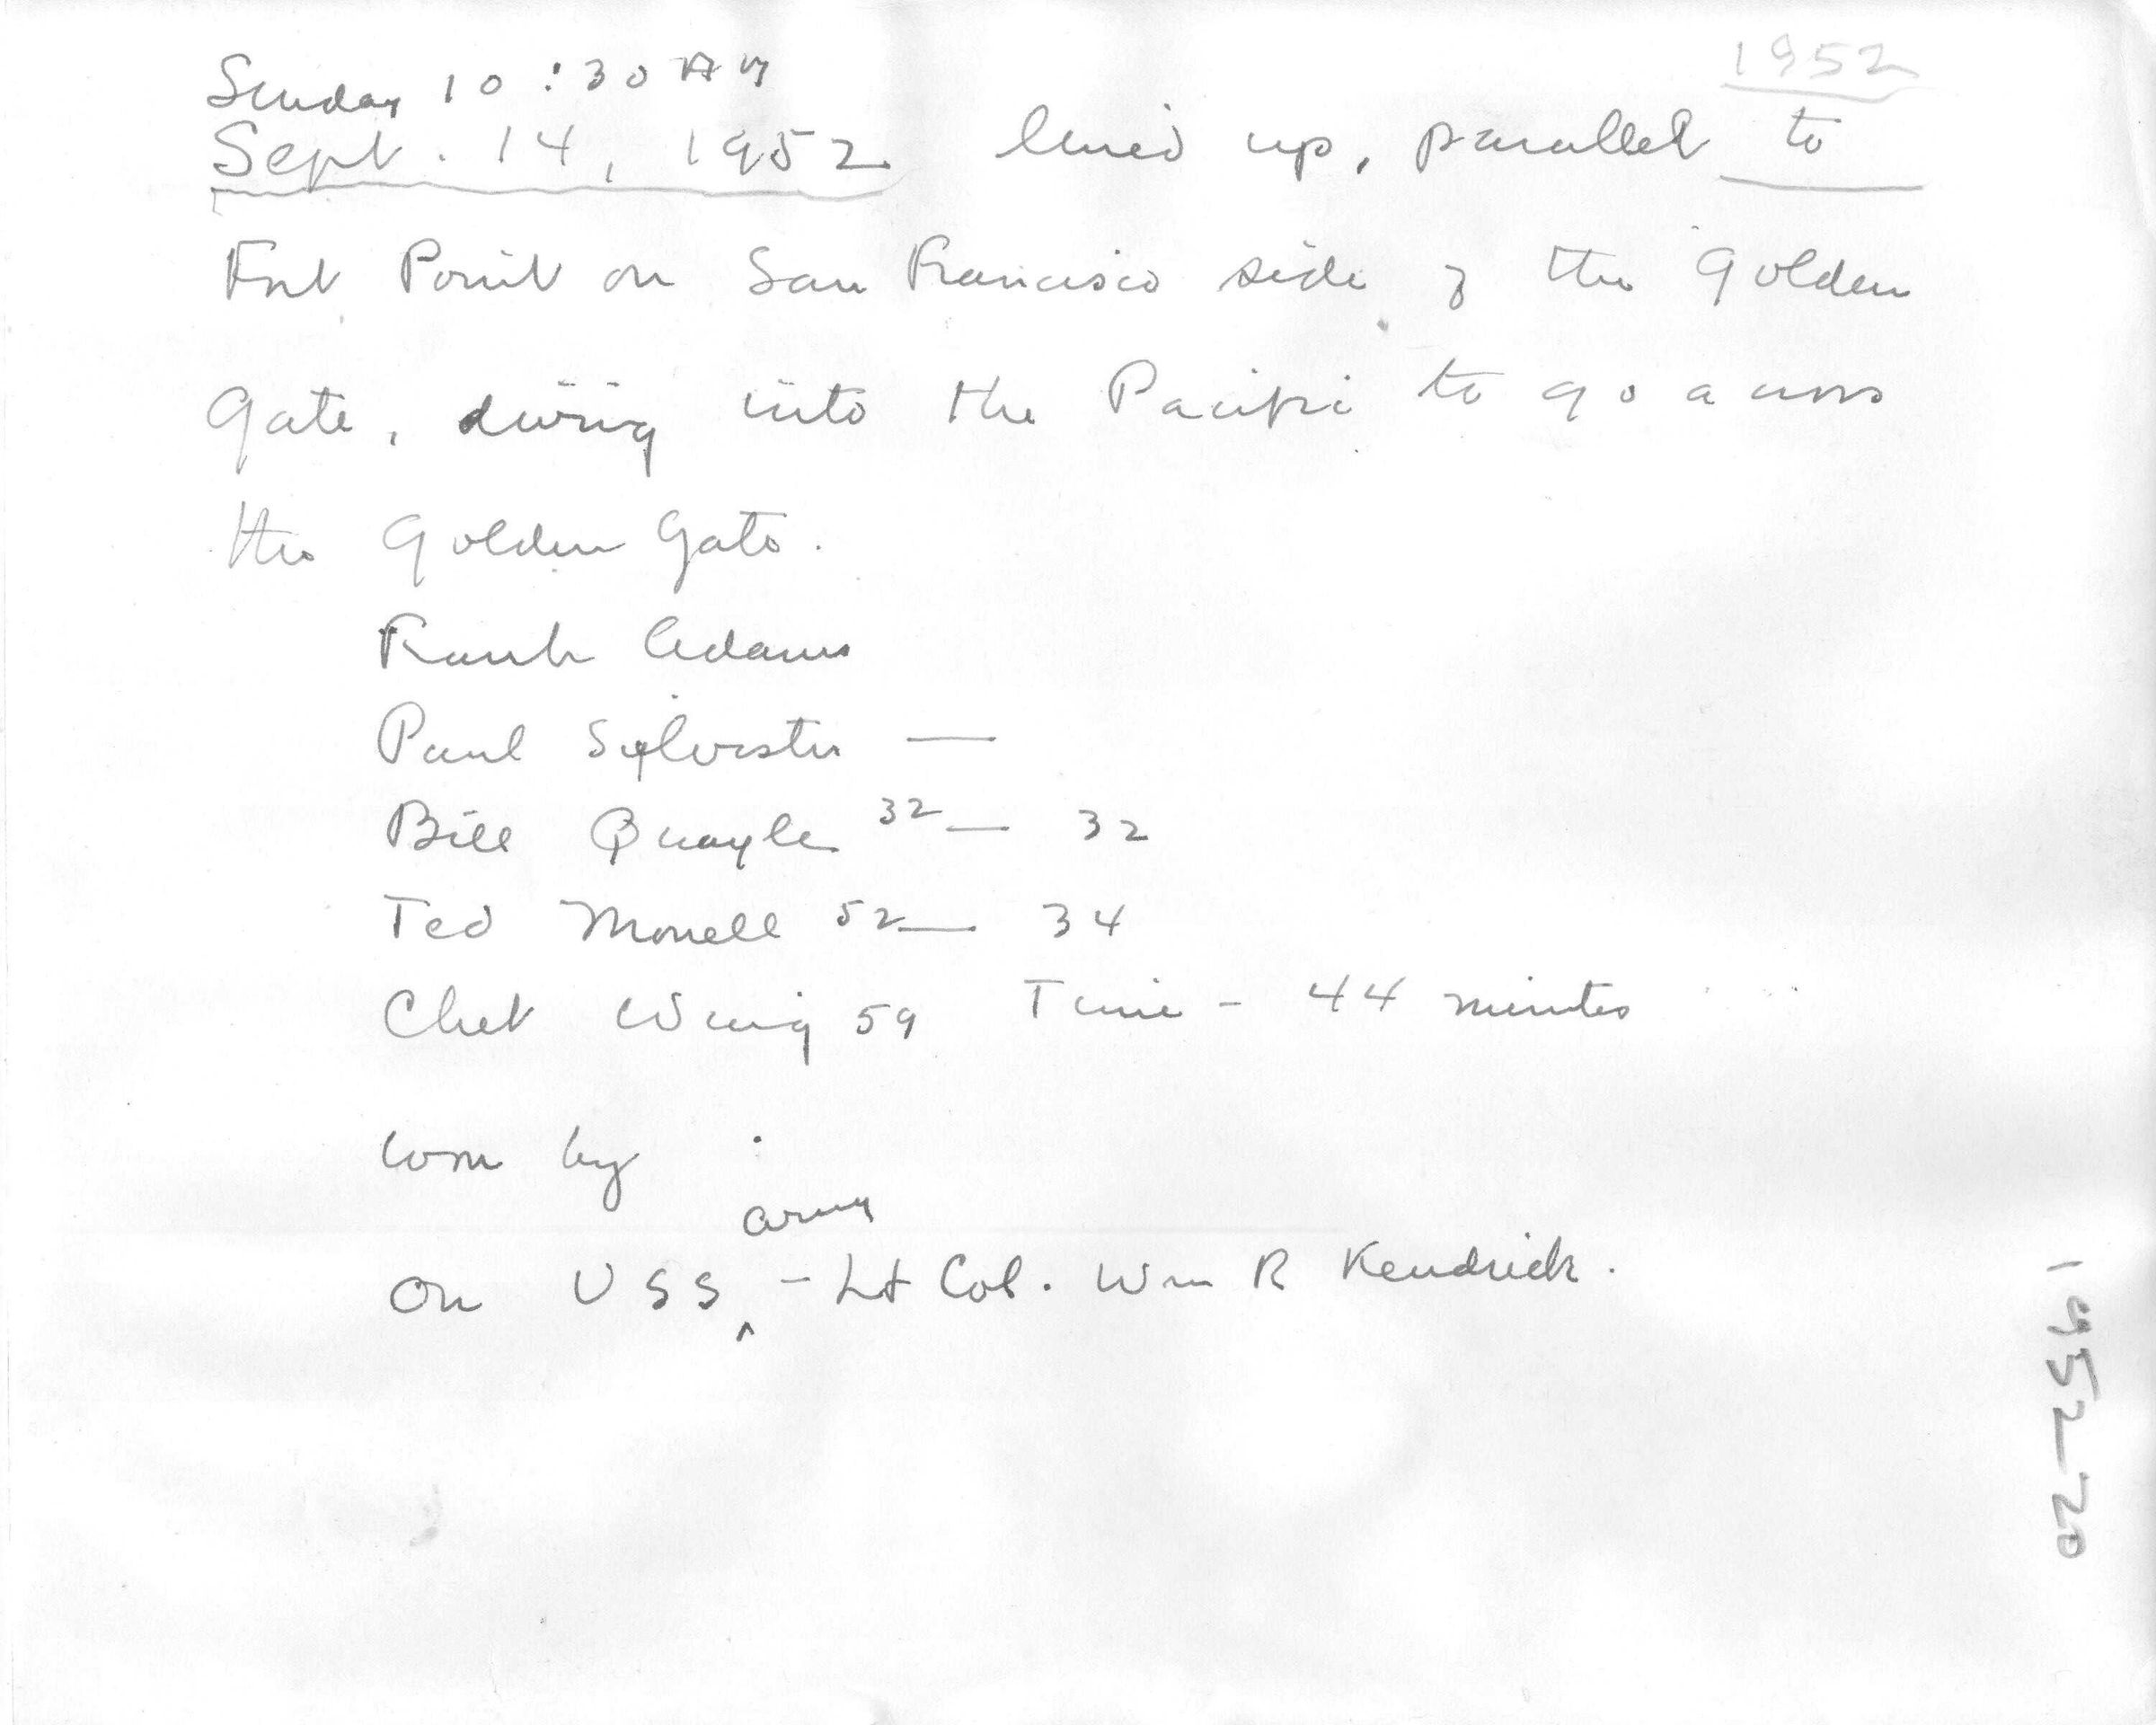 1952
Sunday 10:30 AM
Sept. 14, 1952 lined up, parallel to
Fort Point on San Francisco side of the Golden
Gate, diving into the Pacific to go across
the Golden Gate.
Frank Adams
Paul Sylvester —
Bill Quayle 32 — 32
Ted 52 — 34
Chet Wing 59 Time - 44 minutes
won by
army
On USS ^ - Lt Col. Wm R Kendrick.
1952-20